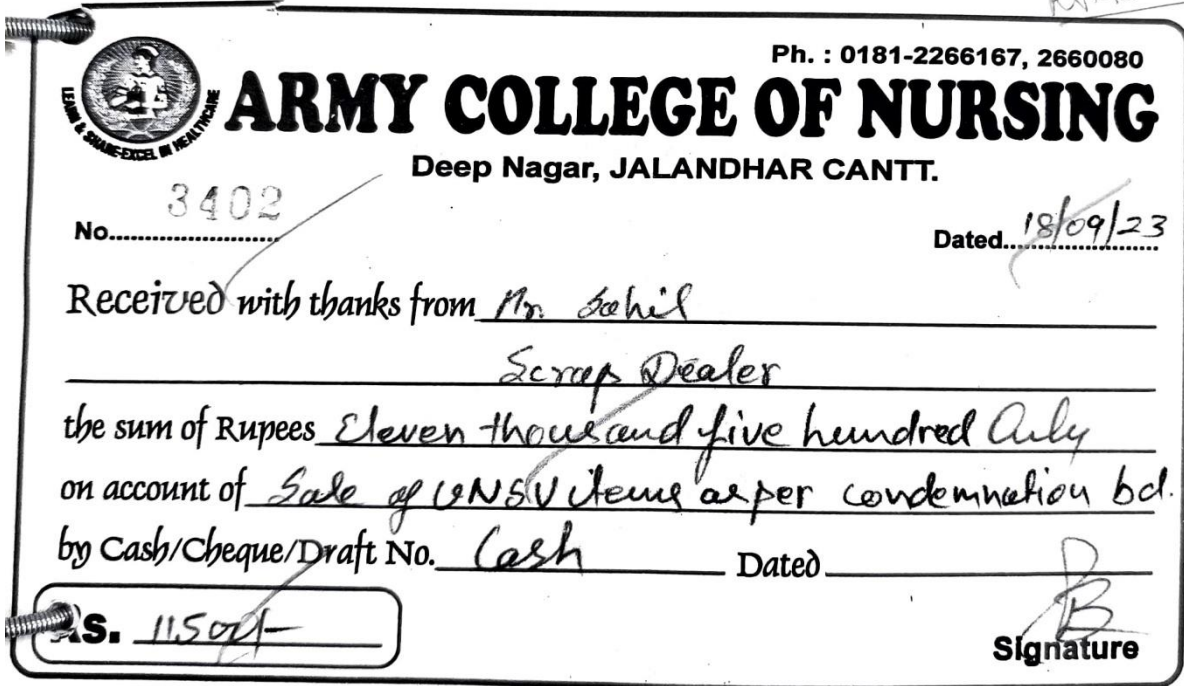 Ph. : 0181-2266167, 2660080
ARMY COLLEGE OF NURSING
LEARN & SHARE-EXCEL IN HEALTHCARE
Deep Nagar, JALANDHAR CANTT.
No. 3402
Dated 18/09/23
Received with thanks from Mr. Sahil
Scrap Dealer
the sum of Rupees Eleven thousand five hundred Only
on account of Sale of UNSV items as per condemnation bd.
by Cash/Cheque/Draft No. Cash Dated
RS. 11500/-
Signature